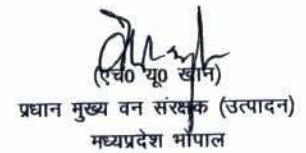 (एच0 यू0 खान)
प्रधान मुख्य वन संरक्षक (उत्पादन)
मध्यप्रदेश भोपाल